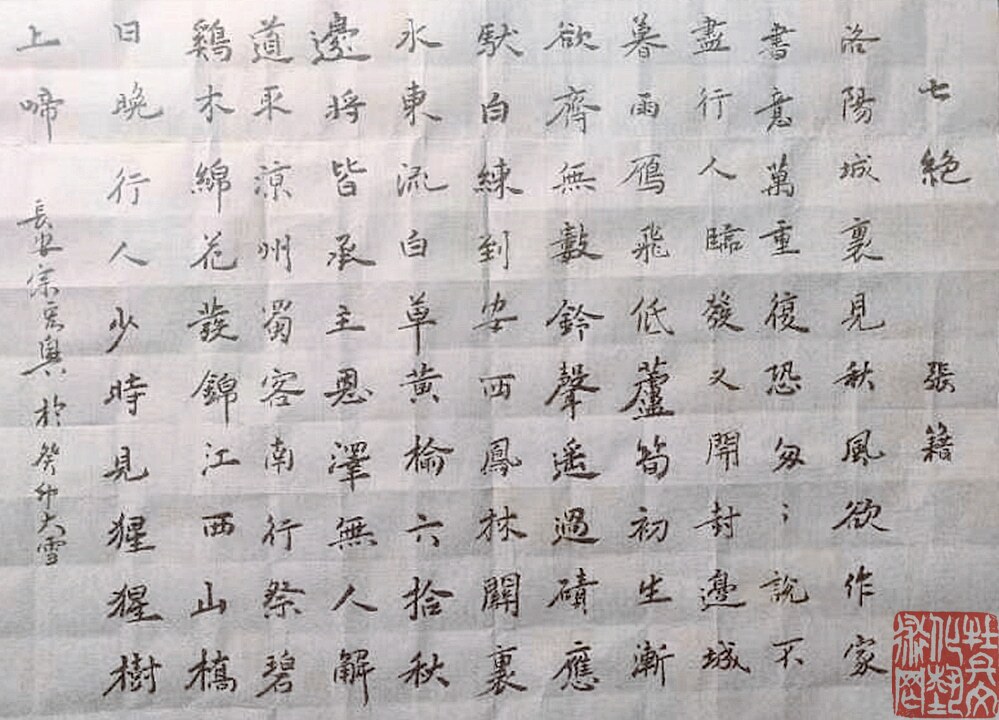 七絕 張籍
洛陽城裏見秋風欲作家
書意萬重復恐匆〻說不
盡行人臨發又開封邊城
暮雨鴈飛低蘆筍初生漸
欲齊無數鈴聲遥過磧應
馱白練到安西鳳林關裏
水東流白草黃榆六拾秋
邊將皆承主恩澤無人解
道取涼州蜀客南行祭碧
鷄木綿花發錦江西山橋
日晚行人少時見猩猩樹
上啼
長安宗 於癸卯大雪